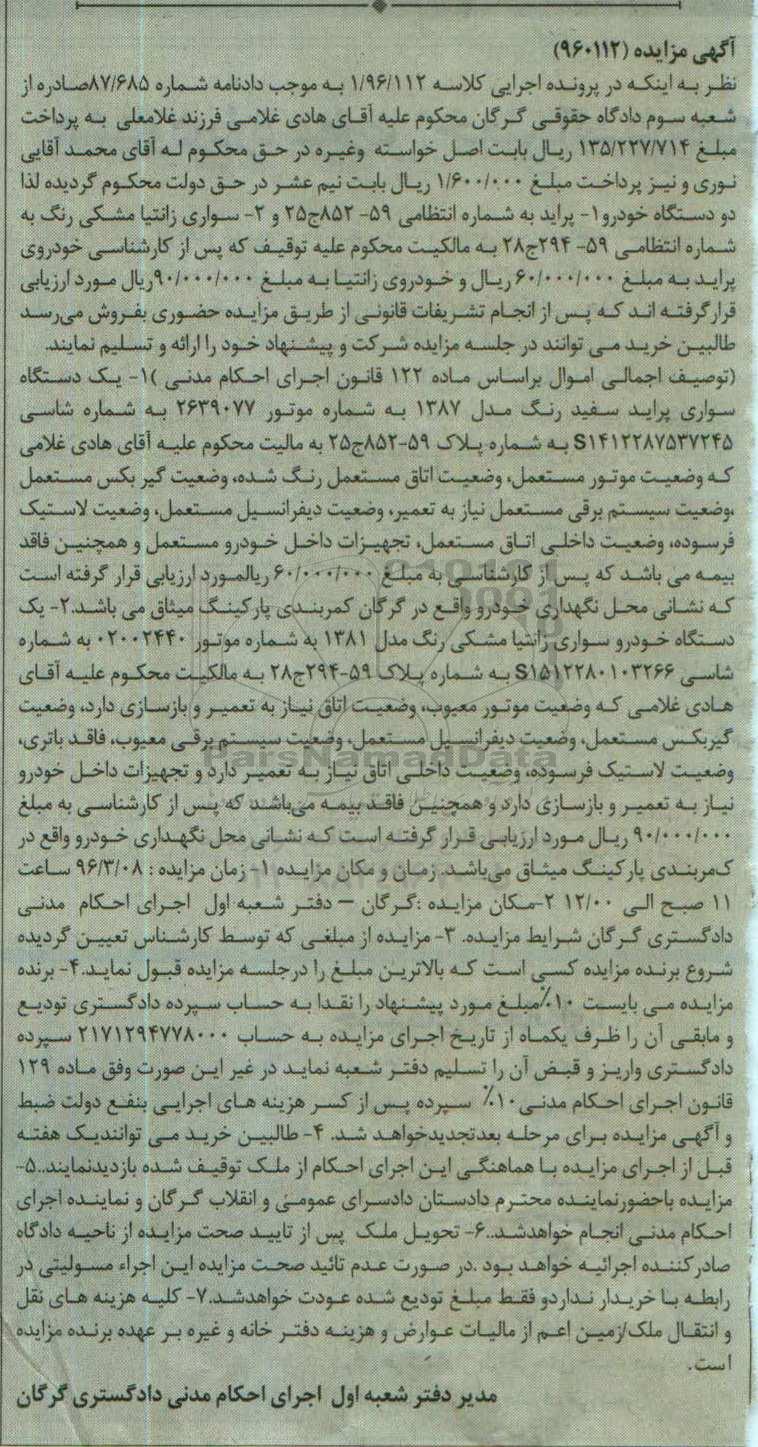 آگهی مزایده (۹۶۰۱۱۲)
نظر به اینکه در پرونده اجرایی کلاسه ۱/۹۶/۱۱۲ به موجب دادنامه شماره ۸۷/۶۸۵صادره از
شعبه سوم دادگاه حقوقی گرگان محکوم علیه آقای هادی غلامی فرزند غلامعلی به پرداخت
مبلغ ۱۳۵/۲۲۷/۷۱۴ ریال بابت اصل خواسته وغیره در حق محکوم له آقای محمد آقایی
نوری و نیز پرداخت مبلغ ۱/۶۰۰/۰۰۰ ریال بابت نیم عشر در حق دولت محکوم گردیده لذا
دو دستگاه خودرو۱- پراید به شماره انتظامی ۵۹- ۸۵۲ج۲۵ و ۲- سواری زانتیا مشکی رنگ به
شماره انتظامی ۵۹- ۲۹۴ج۲۸ به مالکیت محکوم علیه توقیف که پس از کارشناسی خودروی
پراید به مبلغ ۶۰/۰۰۰/۰۰۰ ریال و خودروی زانتیا به مبلغ ۹۰/۰۰۰/۰۰۰ریال مورد ارزیابی
قرارگرفته اند که پس از انجام تشریفات قانونی از طریق مزایده حضوری بفروش می‌رسد
طالبین خرید می توانند در جلسه مزایده شرکت و پیشنهاد خود را ارائه و تسلیم نمایند.
(توصیف اجمالی اموال براساس ماده ۱۲۲ قانون اجرای احکام مدنی )۱- یک دستگاه
سواری پراید سفید رنگ مدل ۱۳۸۷ به شماره موتور ۲۶۳۹۰۷۷ به شماره شاسی
S۱۴۱۲۲۸۷۵۳۷۲۴۵ به شماره پلاک ۵۹-۸۵۲ج۲۵ به مالیت محکوم علیه آقای هادی غلامی
که وضعیت موتور مستعمل، وضعیت اتاق مستعمل رنگ شده، وضعیت گیر بکس مستعمل
،وضعیت سیستم برقی مستعمل نیاز به تعمیر، وضعیت دیفرانسیل مستعمل، وضعیت لاستیک
فرسوده، وضعیت داخلی اتاق مستعمل، تجهیزات داخل خودرو مستعمل و همچنین فاقد
بیمه می باشد که پس از کارشناسی به مبلغ ۶۰/۰۰۰/۰۰۰ ریالمورد ارزیابی قرار گرفته است
که نشانی محل نگهداری خودرو واقع در گرگان کمربندی پارکینگ میثاق می باشد.۲- یک
دستگاه خودرو سواری زانتیا مشکی رنگ مدل ۱۳۸۱ به شماره موتور ۰۲۰۰۲۴۴۰ به شماره
شاسی S۱۵۱۲۲۸۰۱۰۳۲۶۶ به شماره پلاک ۵۹-۲۹۴ج۲۸ به مالکیت محکوم علیه آقای
هادی غلامی که وضعیت موتور معیوب، وضعیت اتاق نیاز به تعمیر و بازسازی دارد، وضعیت
گیربکس مستعمل، وضعیت دیفرانسیل مستعمل، وضعیت سیستم برقی معیوب، فاقد باتری،
وضعیت لاستیک فرسوده، وضعیت داخلی اتاق نیاز به تعمیر دارد و تجهیزات داخل خودرو
نیاز به تعمیر و بازسازی دارد و همچنین فاقد بیمه می‌باشد که پس از کارشناسی به مبلغ
۹۰/۰۰۰/۰۰۰ ریال مورد ارزیابی قرار گرفته است که نشانی محل نگهداری خودرو واقع در
کمربندی پارکینگ میثاق می‌باشد. زمان و مکان مزایده ۱- زمان مزایده : ۹۶/۳/۰۸ ساعت
۱۱ صبح الی ۱۲/۰۰ ۲-مکان مزایده :گرگان – دفتر شعبه اول اجرای احکام مدنی
دادگستری گرگان شرایط مزایده. ۳- مزایده از مبلغی که توسط کارشناس تعیین گردیده
شروع برنده مزایده کسی است که بالاترین مبلغ را درجلسه مزایده قبول نماید.۴- برنده
مزایده می بایست ۱۰٪مبلغ مورد پیشنهاد را نقدا به حساب سپرده دادگستری تودیع
و مابقی آن را ظرف یکماه از تاریخ اجرای مزایده به حساب ۲۱۷۱۲۹۴۷۷۸۰۰۰ سپرده
دادگستری واریز و قبض آن را تسلیم دفتر شعبه نماید در غیر این صورت وفق ماده ۱۲۹
قانون اجرای احکام مدنی۱۰٪ سپرده پس از کسر هزینه های اجرایی بنفع دولت ضبط
و آگهی مزایده برای مرحله بعدتجدیدخواهد شد. ۴- طالبین خرید می توانندیک هفته
قبل از اجرای مزایده با هماهنگی این اجرای احکام از ملک توقیف شده بازدیدنمایند..۵-
مزایده باحضورنماینده محترم دادستان دادسرای عمومی و انقلاب گرگان و نماینده اجرای
احکام مدنی انجام خواهدشد..۶- تحویل ملک پس از تایید صحت مزایده از ناحیه دادگاه
صادرکننده اجرائیه خواهد بود .در صورت عدم تائید صحت مزایده این اجراء مسولیتی در
رابطه با خریدار نداردو فقط مبلغ تودیع شده عودت خواهدشد.۷- کلیه هزینه های نقل
و انتقال ملک/زمین اعم از مالیات عوارض و هزینه دفتر خانه و غیره بر عهده برنده مزایده
است.
مدیر دفتر شعبه اول اجرای احکام مدنی دادگستری گرگان
ParsNamadData